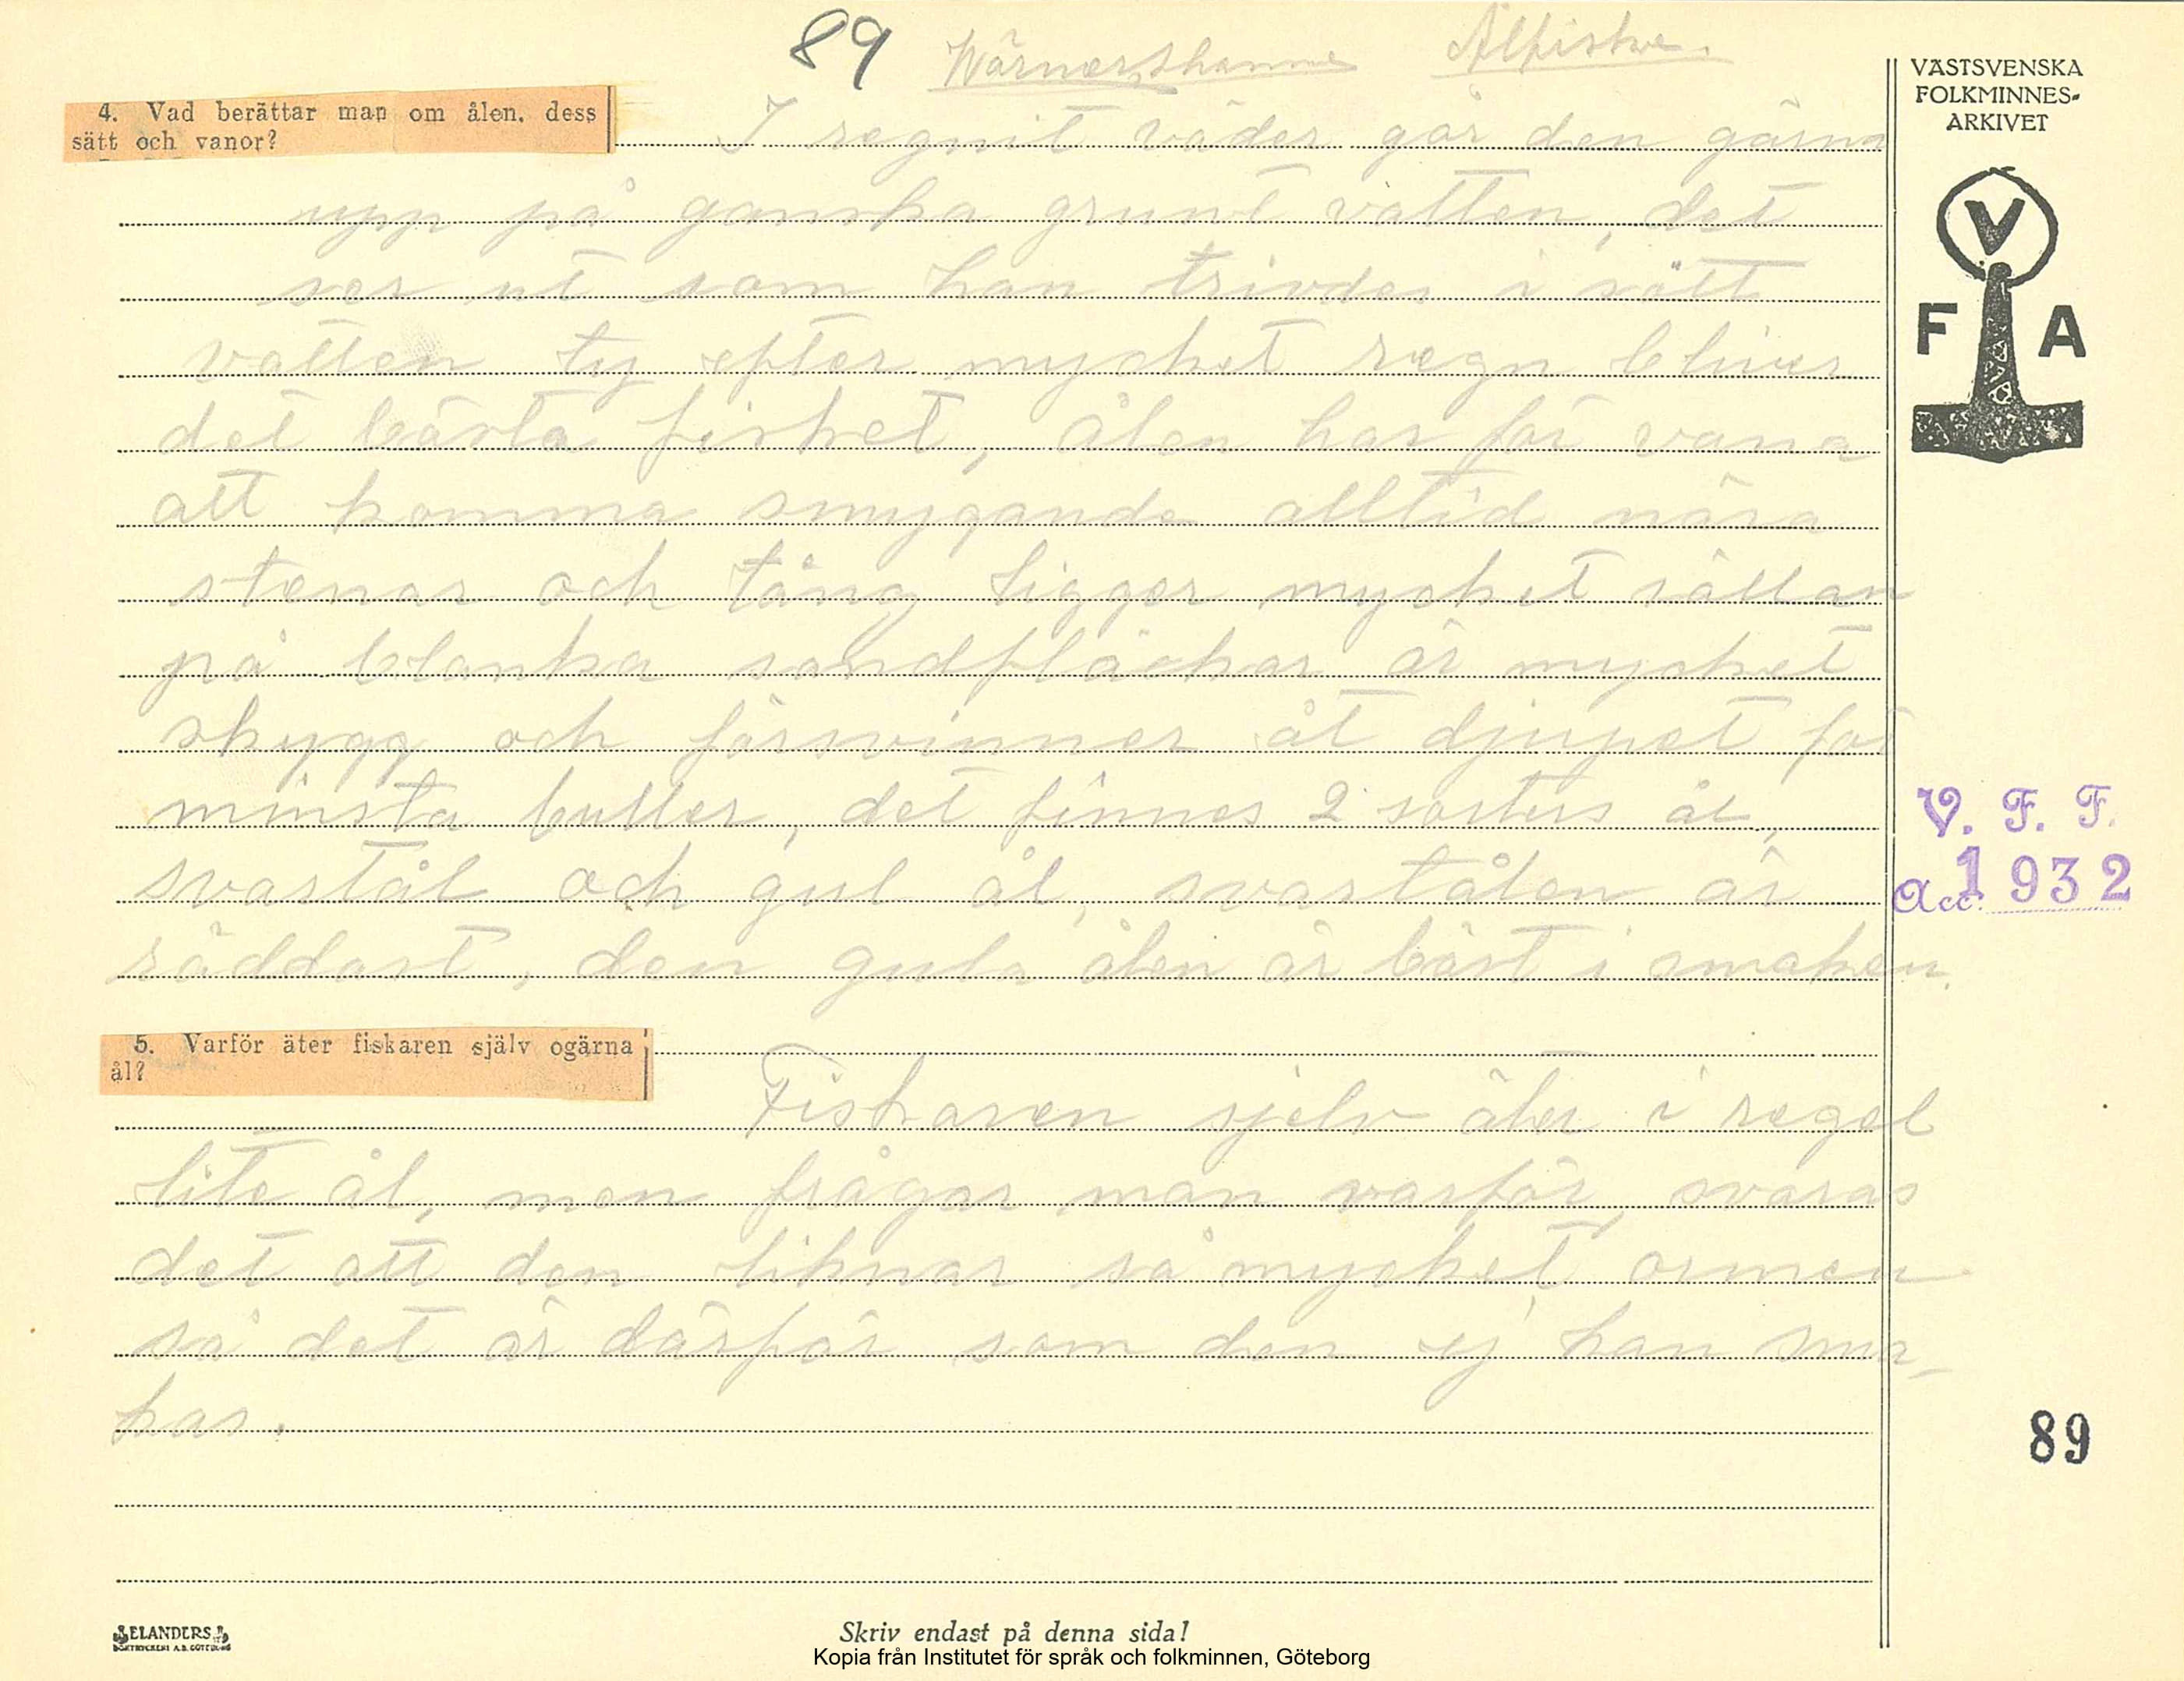 89 Wärnershamn Ålfiske.
VÄSTSVENSKA
FOLKMINNES-
ARKIVET
V
F A
4. Vad berättar man om ålen, dess
sätt och vanor?
I regnit väder går den gärna
upp på ganska grunt vatten, det
ser ut som han trivdes i sött
vatten ty efter mycket regn bliver
det bästa fisket, ålen har för vana
att komma smygande alltid nära
stenar och tång ligger mycket sällan
på blanka sandfläckar är mycket
skygg och försvinner åt djupet för
minsta buller, det finnes 2 sorters ål,
svartål och gul ål, svartålen är
räddast, den gula ålen är bäst i smaken.
V. F. F.
Acc. 1932
5. Varför äter fiskaren själv ogärna
ål?
Fiskaren sjelv äter i regel
lite ål, men frågar man varför, svaras
det att den liknar så mycket ormen
så det är därför som den ej kan sma-
kas.
89
ELANDERS
BOKTRYCKERI A.B. GÖTEBORG
Skriv endast på denna sida!
Kopia från Institutet för språk och folkminnen, Göteborg